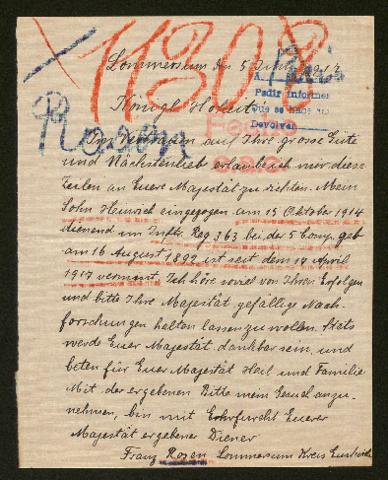 11308
Lommersum den 5
A.
Pedir informes
que se
Devolver
Königl Hoheit!
Rosen
Im Vertrauen auf Ihre grosse Güte
und Nächstenlieb erlaube ich mir diese
Zeilen an Euere Majestät zu richten. Mein
Sohn Heinrich eingezogen am 15 Oktober 1914
dienend im Inftr. Reg 363 bei der 5 Comp. geb
am 16 August 1892 ist seit dem 17 April
1917 vermisst. Ich höre soviel von Ihren Erfolgen
und bitte Ihre Majestät gefällige Nach-
forschungen halten lassen zu wollen. Stets
werde Euer Majestät dankbar sein, und
beten für Euer Majestät Heil und Familie
Mit der ergebenen Bitte mein Gesuch anzu-
nehmen, bin mit Ehrfurcht Euerer
Majestät ergebener Diener
Franz Rosen Lommersum Kreis